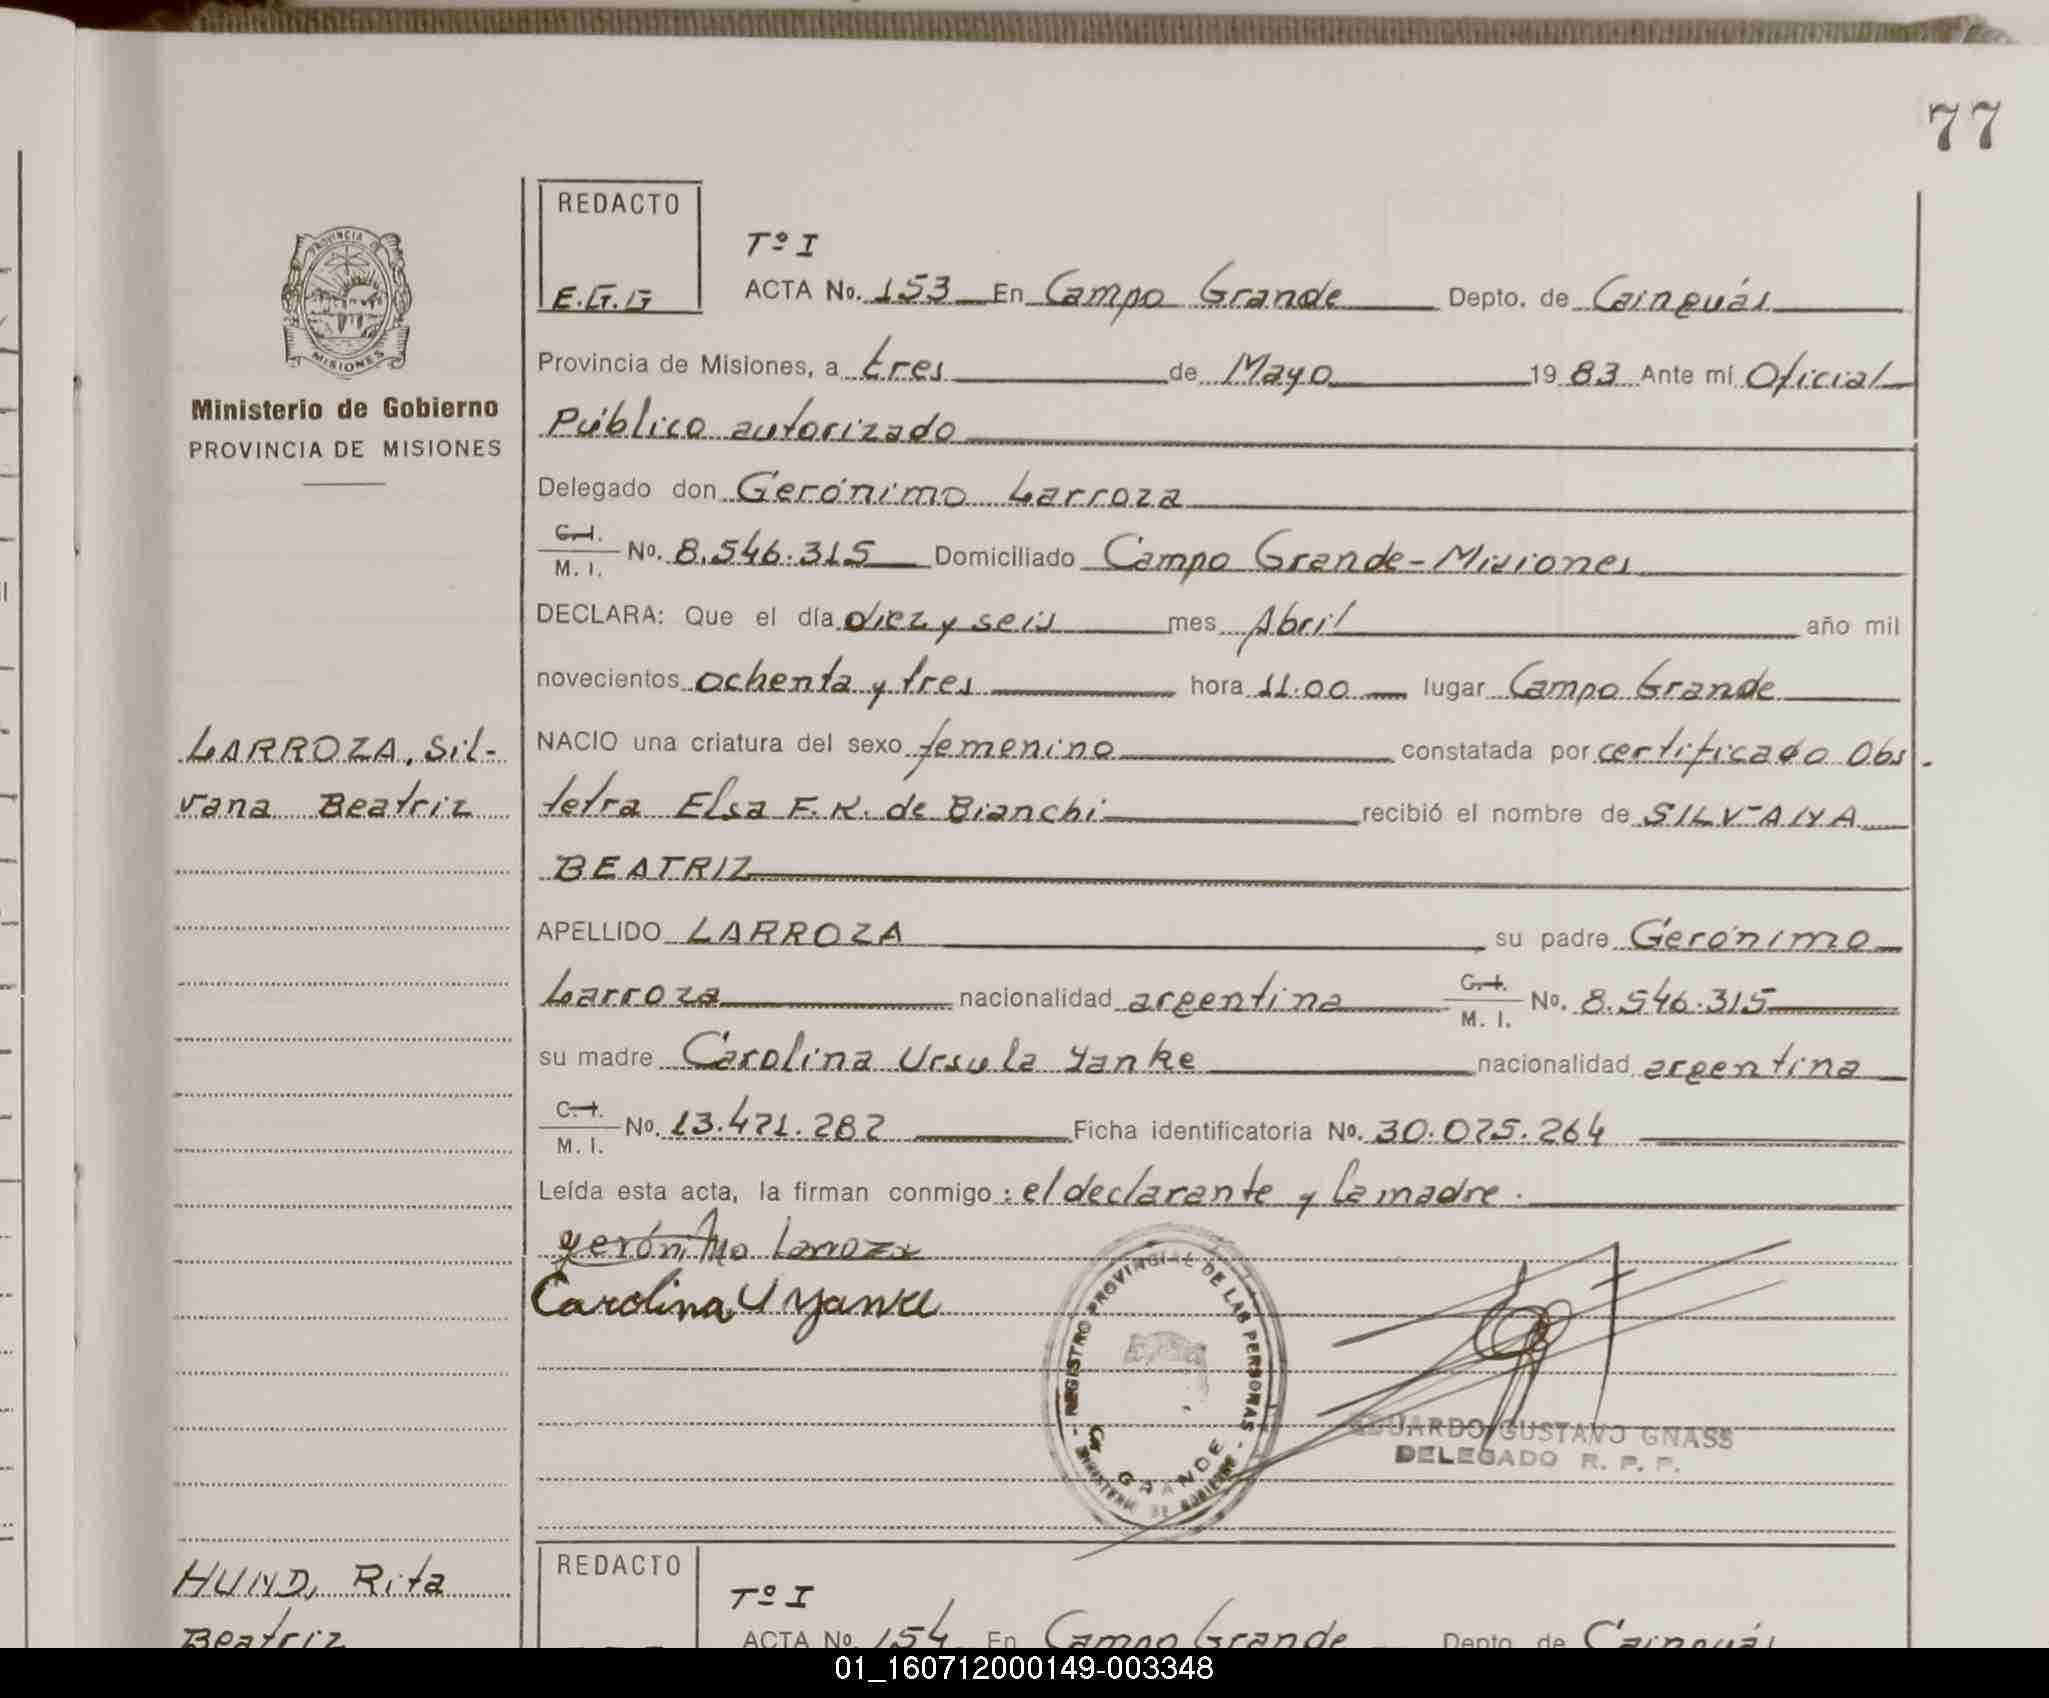 77
REDACTO
E.G.G
Tº I
ACTA No. 153 En Campo Grande Depto. de Cainguás
PROVINCIA DE
MISIONES
Ministerio de Gobierno
PROVINCIA DE MISIONES
Provincia de Misiones, a tres de Mayo 1983 Ante mí Oficial
Público autorizado
Delegado don Gerónimo Larroza
C.I.
M. I. No. 8.546.315 Domiciliado Campo Grande-Misiones
DECLARA: Que el día diez y seis mes Abril año mil
novecientos ochenta y tres hora 11.00 lugar Campo Grande
LARROZA, Sil-
vana Beatriz
NACIO una criatura del sexo femenino constatada por certificado Obs.
tetra Elsa F.K. de Bianchi recibió el nombre de SILVANA
BEATRIZ
APELLIDO LARROZA su padre Gerónimo
Larroza nacionalidad argentina C.I.
M. I. No. 8.546.315
su madre Carolina Ursula Yanke nacionalidad argentina
C.I.
M. I. No. 13.471.287 Ficha identificatoria No. 30.075.264
Leída esta acta, la firman conmigo: el declarante y la madre.
Gerónimo Larroza
Carolina U Yanke
REGISTRO PROVINCIAL DE LAS PERSONAS
GRANDE
MINISTERIO DE GOBIERNO
EDUARDO GUSTAVO GNASS
DELEGADO R. P. P.
HUND, Rita
Beatriz
REDACTO
Tº I
ACTA No. 154 En Campo Grande Depto. de Cainguás
01_160712000149-003348